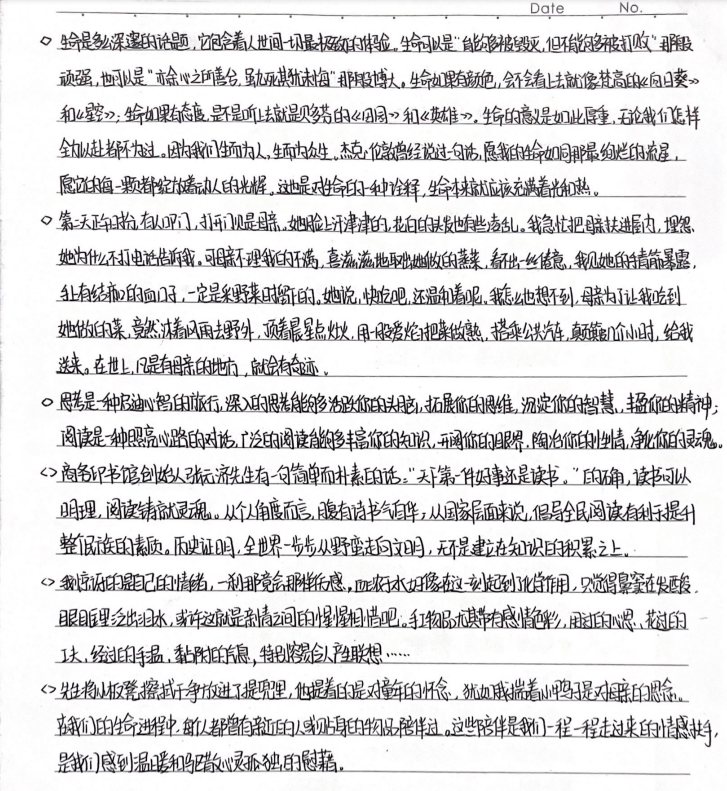 Date No.
◇ 生命是多么深邃的话题，它包含着人世间一切最极致的体验。生命可以是“能够被毁灭，但不能够被打败”那般
顽强，也可以是“亦余心之所善兮，虽九死其犹未悔”那般博大。生命如果有颜色，会不会看上去就像梵高的《向日葵》
和《星空》；生命如果有态度，是不是听上去就是贝多芬的《田园》和《英雄》。生命的意义是如此厚重，无论我们怎样
全力以赴都不为过。因为我们生而为人，生而为众生。杰克·伦敦曾经说过一句话，愿我的生命如同那最绚烂的流星，
愿它的每一颗都绽放着动人的光辉。这也是对生命的一种诠释，生命本来就应该充满着光和热。
◇ 第二天正午时分，有人叩门，打开门见是母亲。她脸上汗津津的，花白的头发也有些凌乱。我急忙把母亲扶进屋内，埋怨
她为什么不打电话告诉我。可母亲不理我的不满，喜滋滋地取出她做的蒸菜，看不出一丝倦意。我见她的手青筋暴露，
手上有结痂的血口子，一定是采野菜时留下的。她说，快吃吧，还温和着呢。我怎么也想不到，母亲为了让我吃到
她做的菜，竟然冒着风雨去野外，顶着晨星点灶火，用一股爱焰把菜做熟，搭乘公共汽车，颠簸几个小时，给我
送来。在世上，凡是有母亲的地方，就会有奇迹。
◇ 思考是一种启迪心智的旅行，深入的思考能够活跃你的头脑，拓展你的思维，沉淀你的智慧，丰盈你的精神；
阅读是一种照亮心路的对话，广泛的阅读能够丰富你的知识，开阔你的眼界，陶冶你的性情，净化你的灵魂。
◇ 商务印书馆创始人张元济先生有一句简单而朴素的话：“天下第一件好事还是读书。”的确，读书可以
明理，阅读铸就灵魂。从个人角度而言，腹有诗书气自华；从国家层面来说，倡导全民阅读有利于提升
整个民族的素质。历史证明，全世界一步步从野蛮走向文明，无不是建立在知识的积累之上。
◇ 我惊讶的是自己的情绪，一刹那竟会那样伤感，血浓于水好像在这一刻起到化学作用，只觉得鼻窦在发酸，
眼眶里泛出泪水，或许这就是亲情之间的惺惺相惜吧。手工物品尤其带有感情色彩，用过的心思、花过的
工夫、经过的手温、黏附的气息，特别容易令人产生联想……
◇ 先生将小板凳擦拭干净放进了提兜里，他提着的是对童年的怀念，犹如我揣着小鸭子是对母亲的思念。
在我们的生命进程中，每个人都曾有亲近的人或贴身的物品陪伴过。这些陪伴是我们一程一程走过来的情感扶手，
是我们感到温暖和驱散心灵孤独的慰藉。